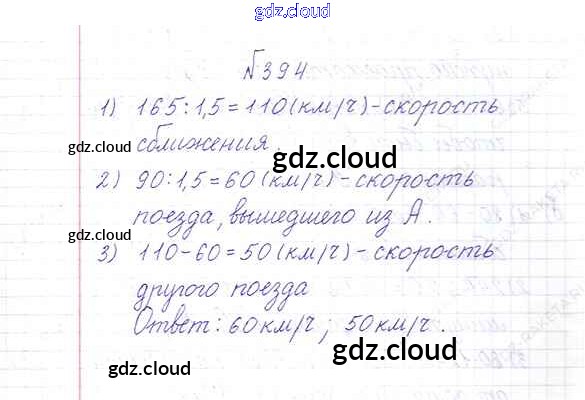 gdz.cloud
№394
1) 165:1,5=110(км/ч)-скорость
сближения.
gdz.cloud
gdz.cloud
2) 90:1,5=60(км/ч)-скорость
поезда, вышедшего из А.
gdz.cloud
3) 110-60=50(км/ч)-скорость
другого поезда
Ответ: 60км/ч; 50км/ч.
gdz.cloud
gdz.cloud